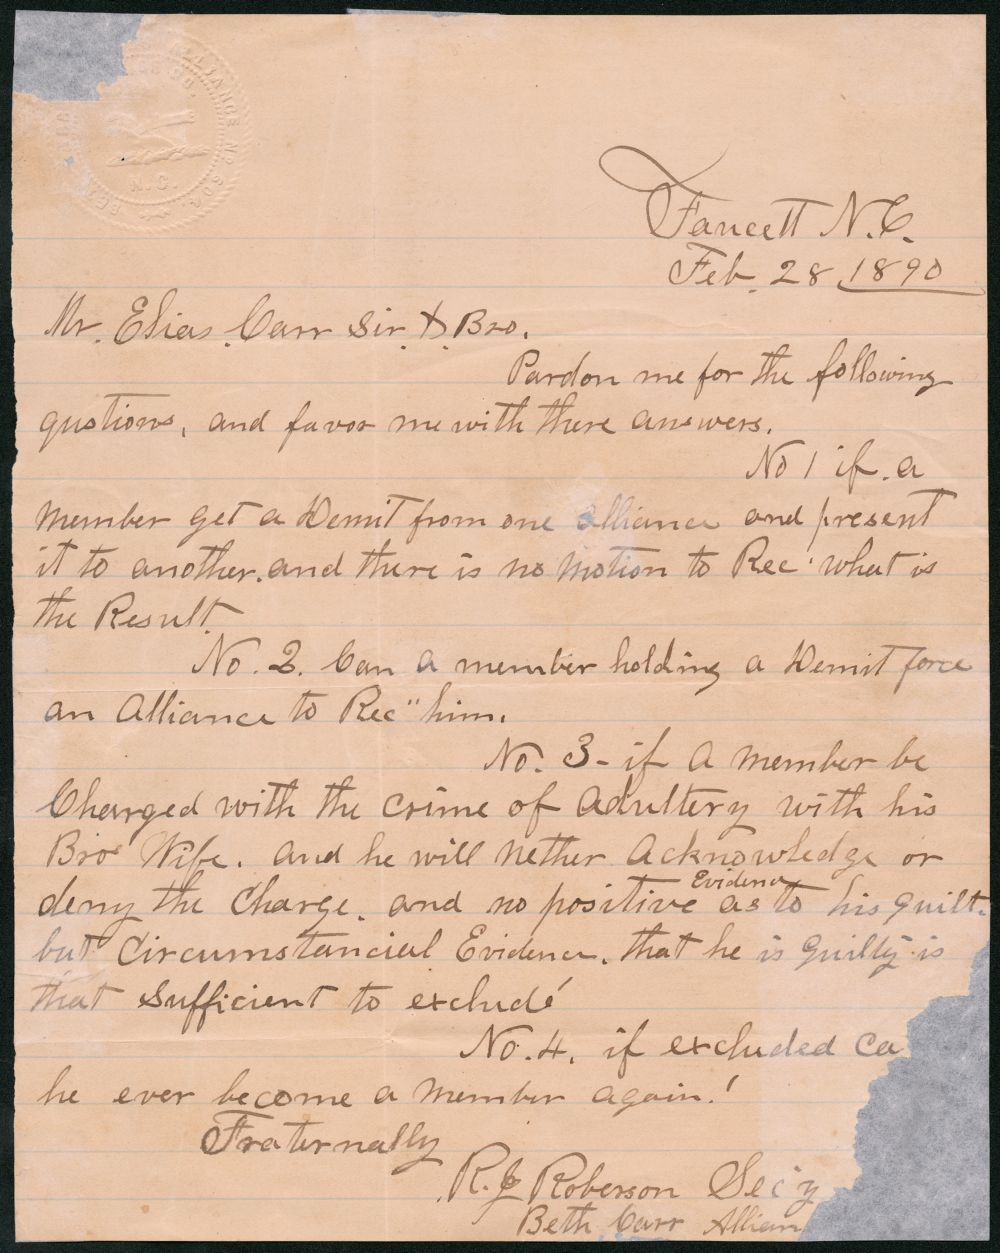 ALLIANCE NO. 504.
N.C.
Faucett N.C.
Feb. 28 1890
Mr. Elias Carr Sir. & Bro.
Pardon me for the following
qustions, and favor me with there answers.
No 1 if a
member get a Demit from one alliance and present
it to another. and there is no Motion to Rec" what is
the Result.
No. 2. Can a member holding a Demit force
an Alliance to Rec" him.
No. 3 - if a member be
Charged with the crime of adultery with his
Bro" Wife. and he will nether acknowledge or
deny the Charge. and no positive Evidence as to his guilt.
but Circumstancial Evidence. that he is guilty. is
that sufficient to exclude
No. 4. if excluded Ca
he ever become a member again!
Fraternally
R. J. Roberson Sec'y
Beth Carr Allian